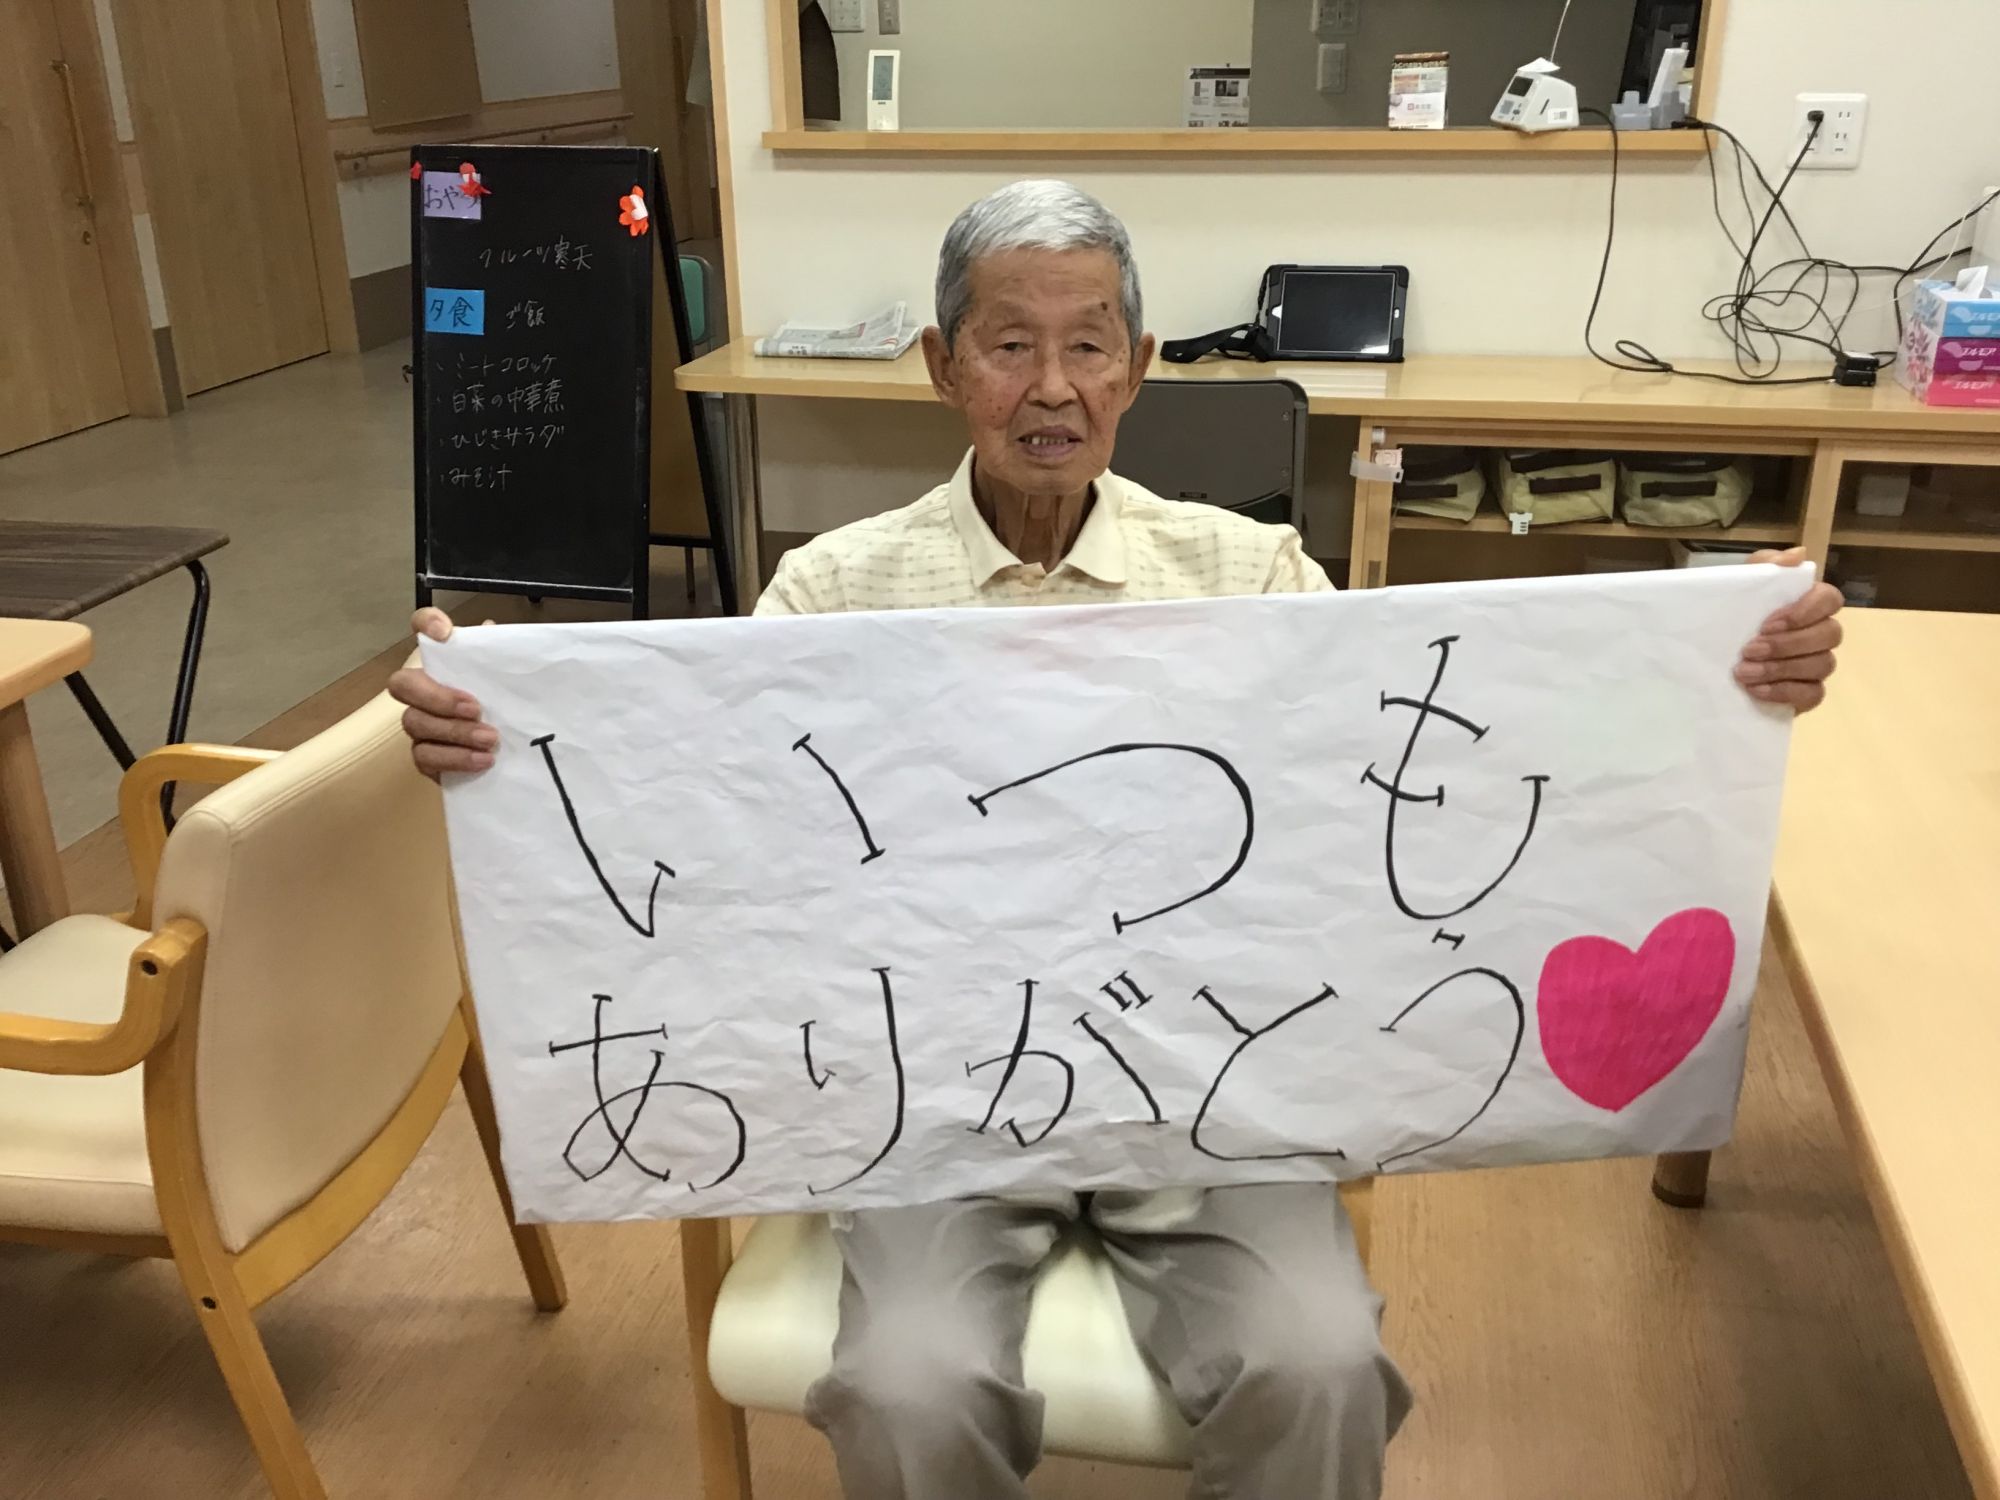 おやつ
フルーツ寒天
夕食 ご飯
・ミートコロッケ
・白菜の中華煮
・ひじきサラダ
・みそ汁
いつも
ありがとう
エルモア
エルモア